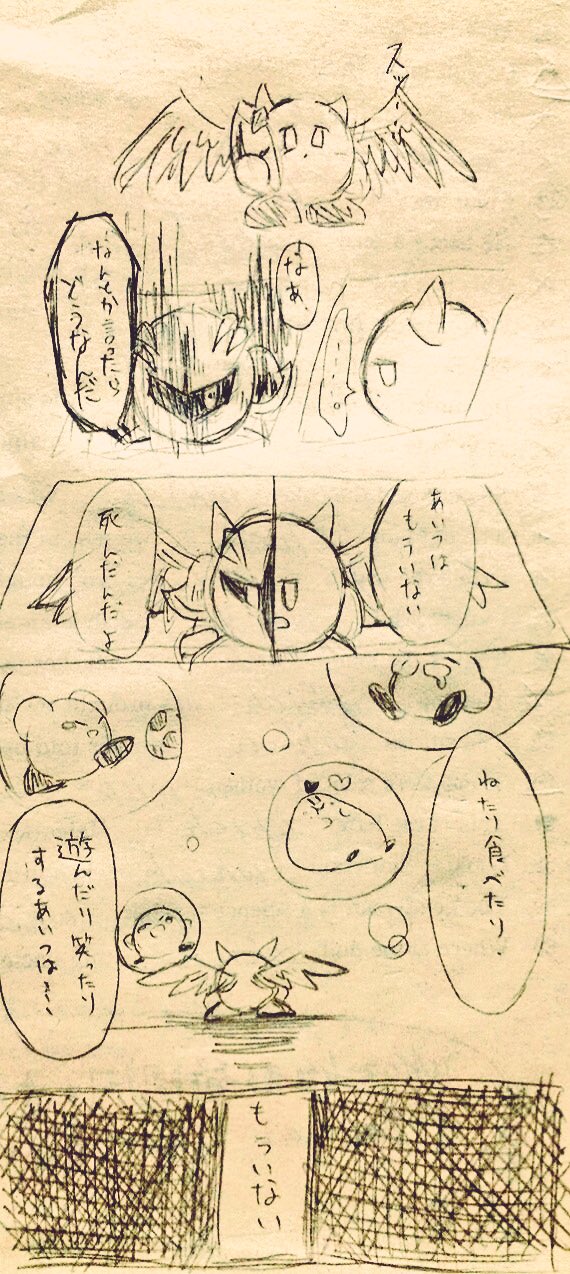 スッ…
なぁ、
なんか言ったら
どうなんだ
あいつは
もういない
死んだんだよ
ねたり食べたり、
遊んだり笑ったり
するあいつは…
もういない